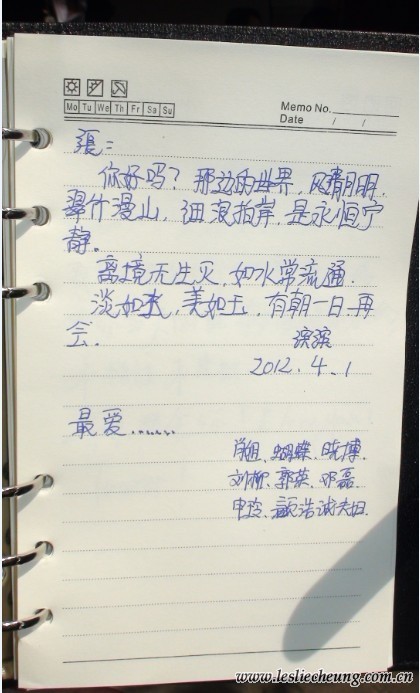 Mo Tu We Th Fr Sa Su
Memo No.
Date / /
張：
你好吗？那边的世界，风晴月明，
翠竹漫山，细浪拍岸，是永恒宁
静。
离境无生灭，如水常流通．
淡如水，美如玉，有朝一日，再
会．
滨滨
2012．4．1
最爱．．．．．．
肖姐、蝴蝶、晓博、
刘柳、郭英、邓磊
申玲、浩诚夫妇．
www.lesliecheung.com.cn